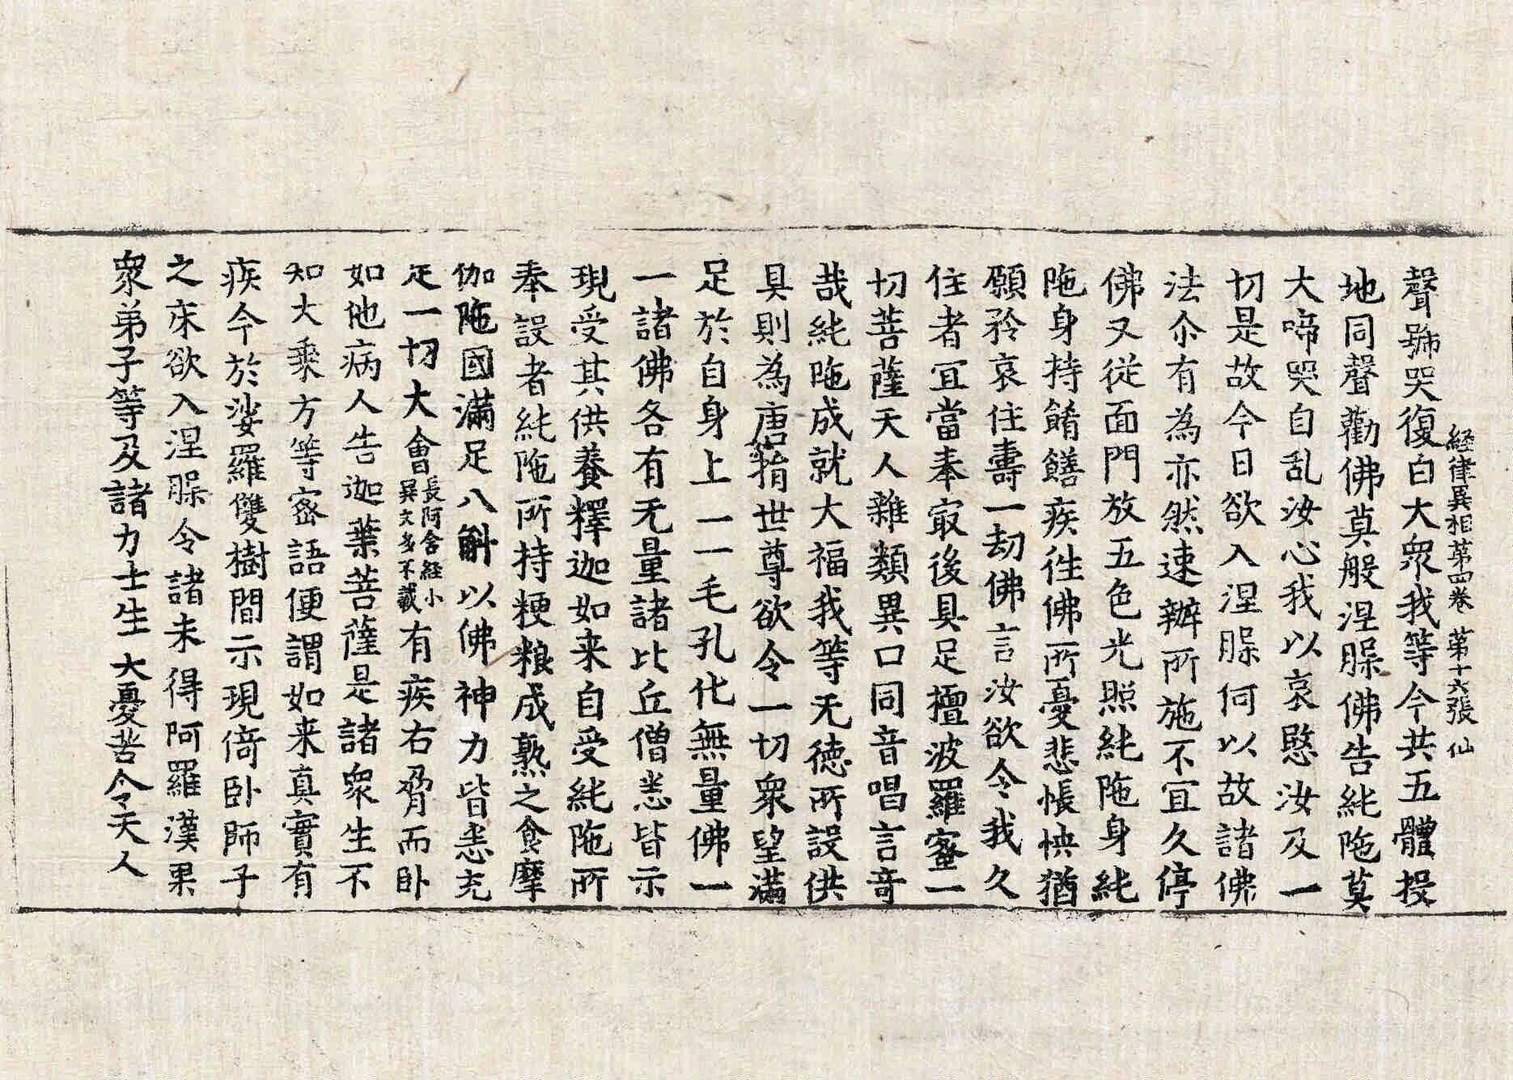 経律異相第四巻　第十六張　仙
聲號哭復白大衆我等今共五體投
地同聲勸佛莫般涅槃佛告純陁莫
大啼哭自乱汝心我以哀愍汝及一
切是故今日欲入涅槃何以故諸佛
法尒有為亦然速辦所施不宜久停
佛又従面門放五色光照純陁身純
陁身持餚饍疾徃佛所憂悲悵怏猶
願矜哀住壽一劫佛言汝欲令我久
住者宜當奉冣後具足檀波羅蜜一
切菩薩天人雜類異口同音唱言奇
哉純陁成就大福我等无德所設供
具則為唐捐世尊欲令一切衆望滿
足於自身上一一毛孔化無量佛一
一諸佛各有无量諸比丘僧悉皆示
現受其供養釋迦如来自受純陁所
奉設者純陁所持粳粮成熟之食摩
伽陁國滿足八斛以佛神力皆悉充
足一切大會長阿含経小異文多不載有疾右脅而卧
如他病人告迦葉菩薩是諸衆生不
知大乘方等密語便謂如来真實有
疾今於娑羅雙樹間示現倚卧師子
之床欲入涅槃令諸未得阿羅漢果
衆弟子等及諸力士生大憂苦令天人